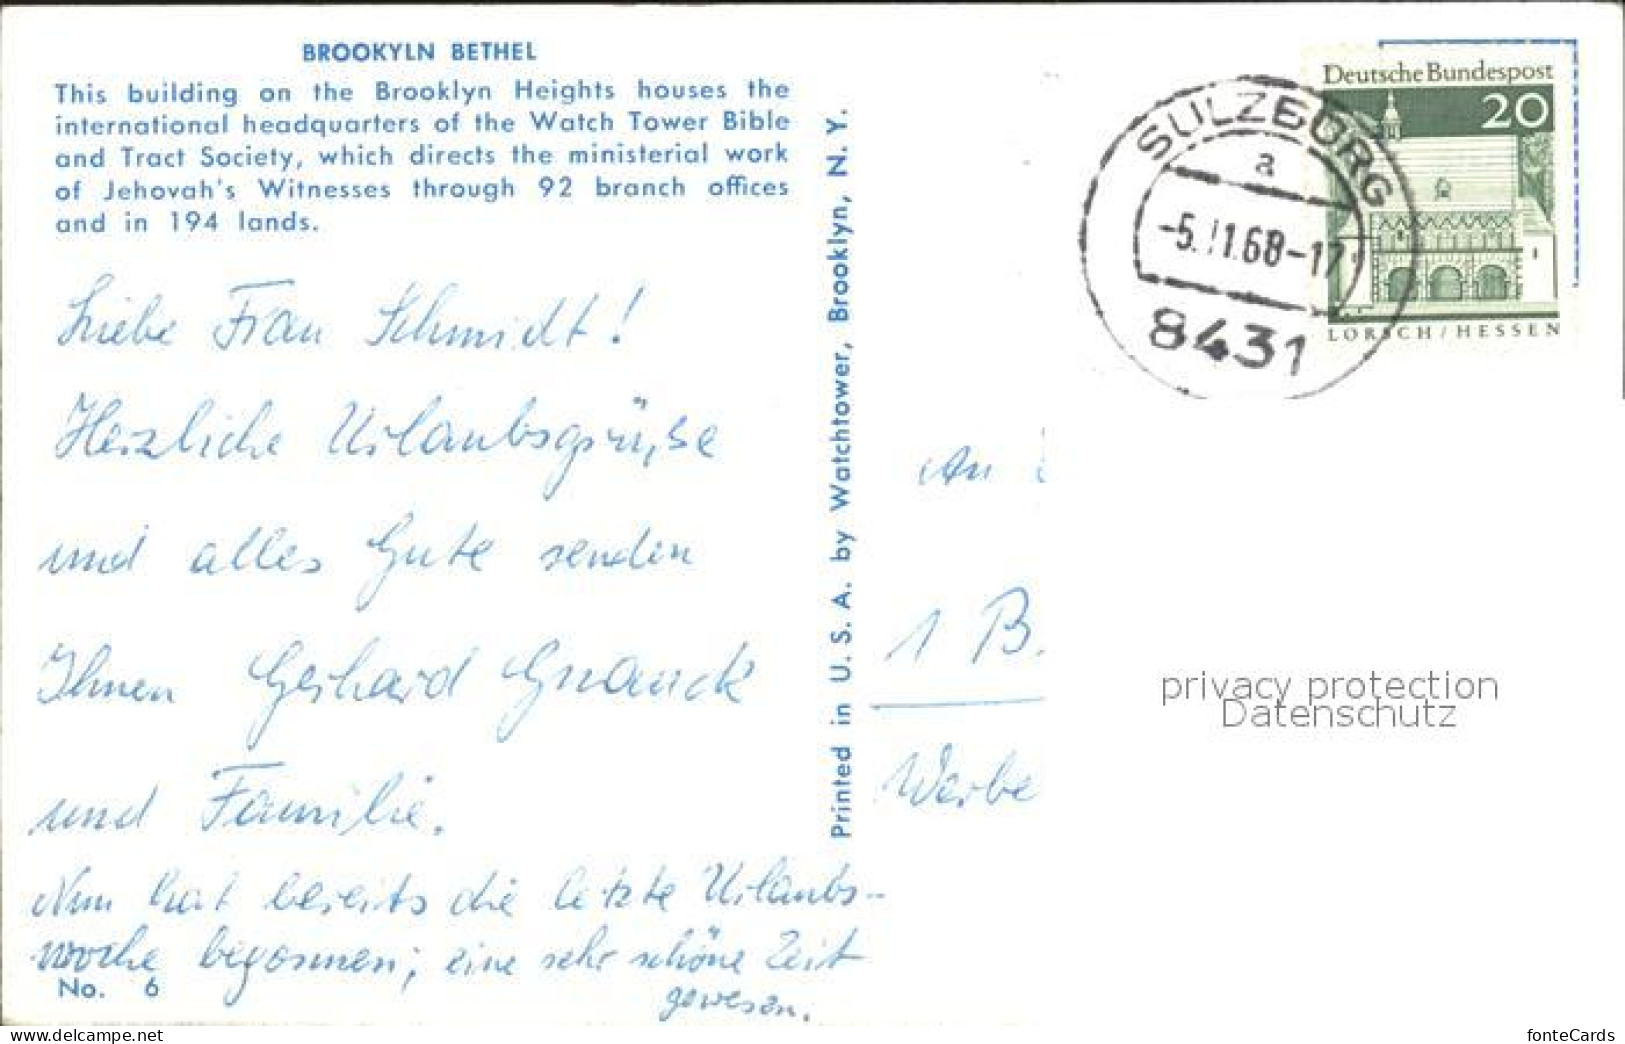 BROOKYLN BETHEL
This building on the Brooklyn Heights houses the
international headquarters of the Watch Tower Bible
and Tract Society, which directs the ministerial work
of Jehovah's Witnesses through 92 branch offices
and in 194 lands.
Liebe Frau Schmidt!
Herzliche Urlaubsgrüße
und alles Gute senden
Ihnen Gerhard Gnauck
und Familie.
Nun hat bereits die letzte Urlaubs-
woche begonnen; eine sehr schöne Zeit
gewesen.
No. 6
Printed in U. S. A. by Watchtower, Brooklyn, N. Y.
Deutsche Bundespost
20
LORSCH/HESSEN
SULZBURG
a
-5. 11.68-17
8431
An
1 B.
Werbe
privacy protection
Datenschutz
www.delcampe.net
fonteCards